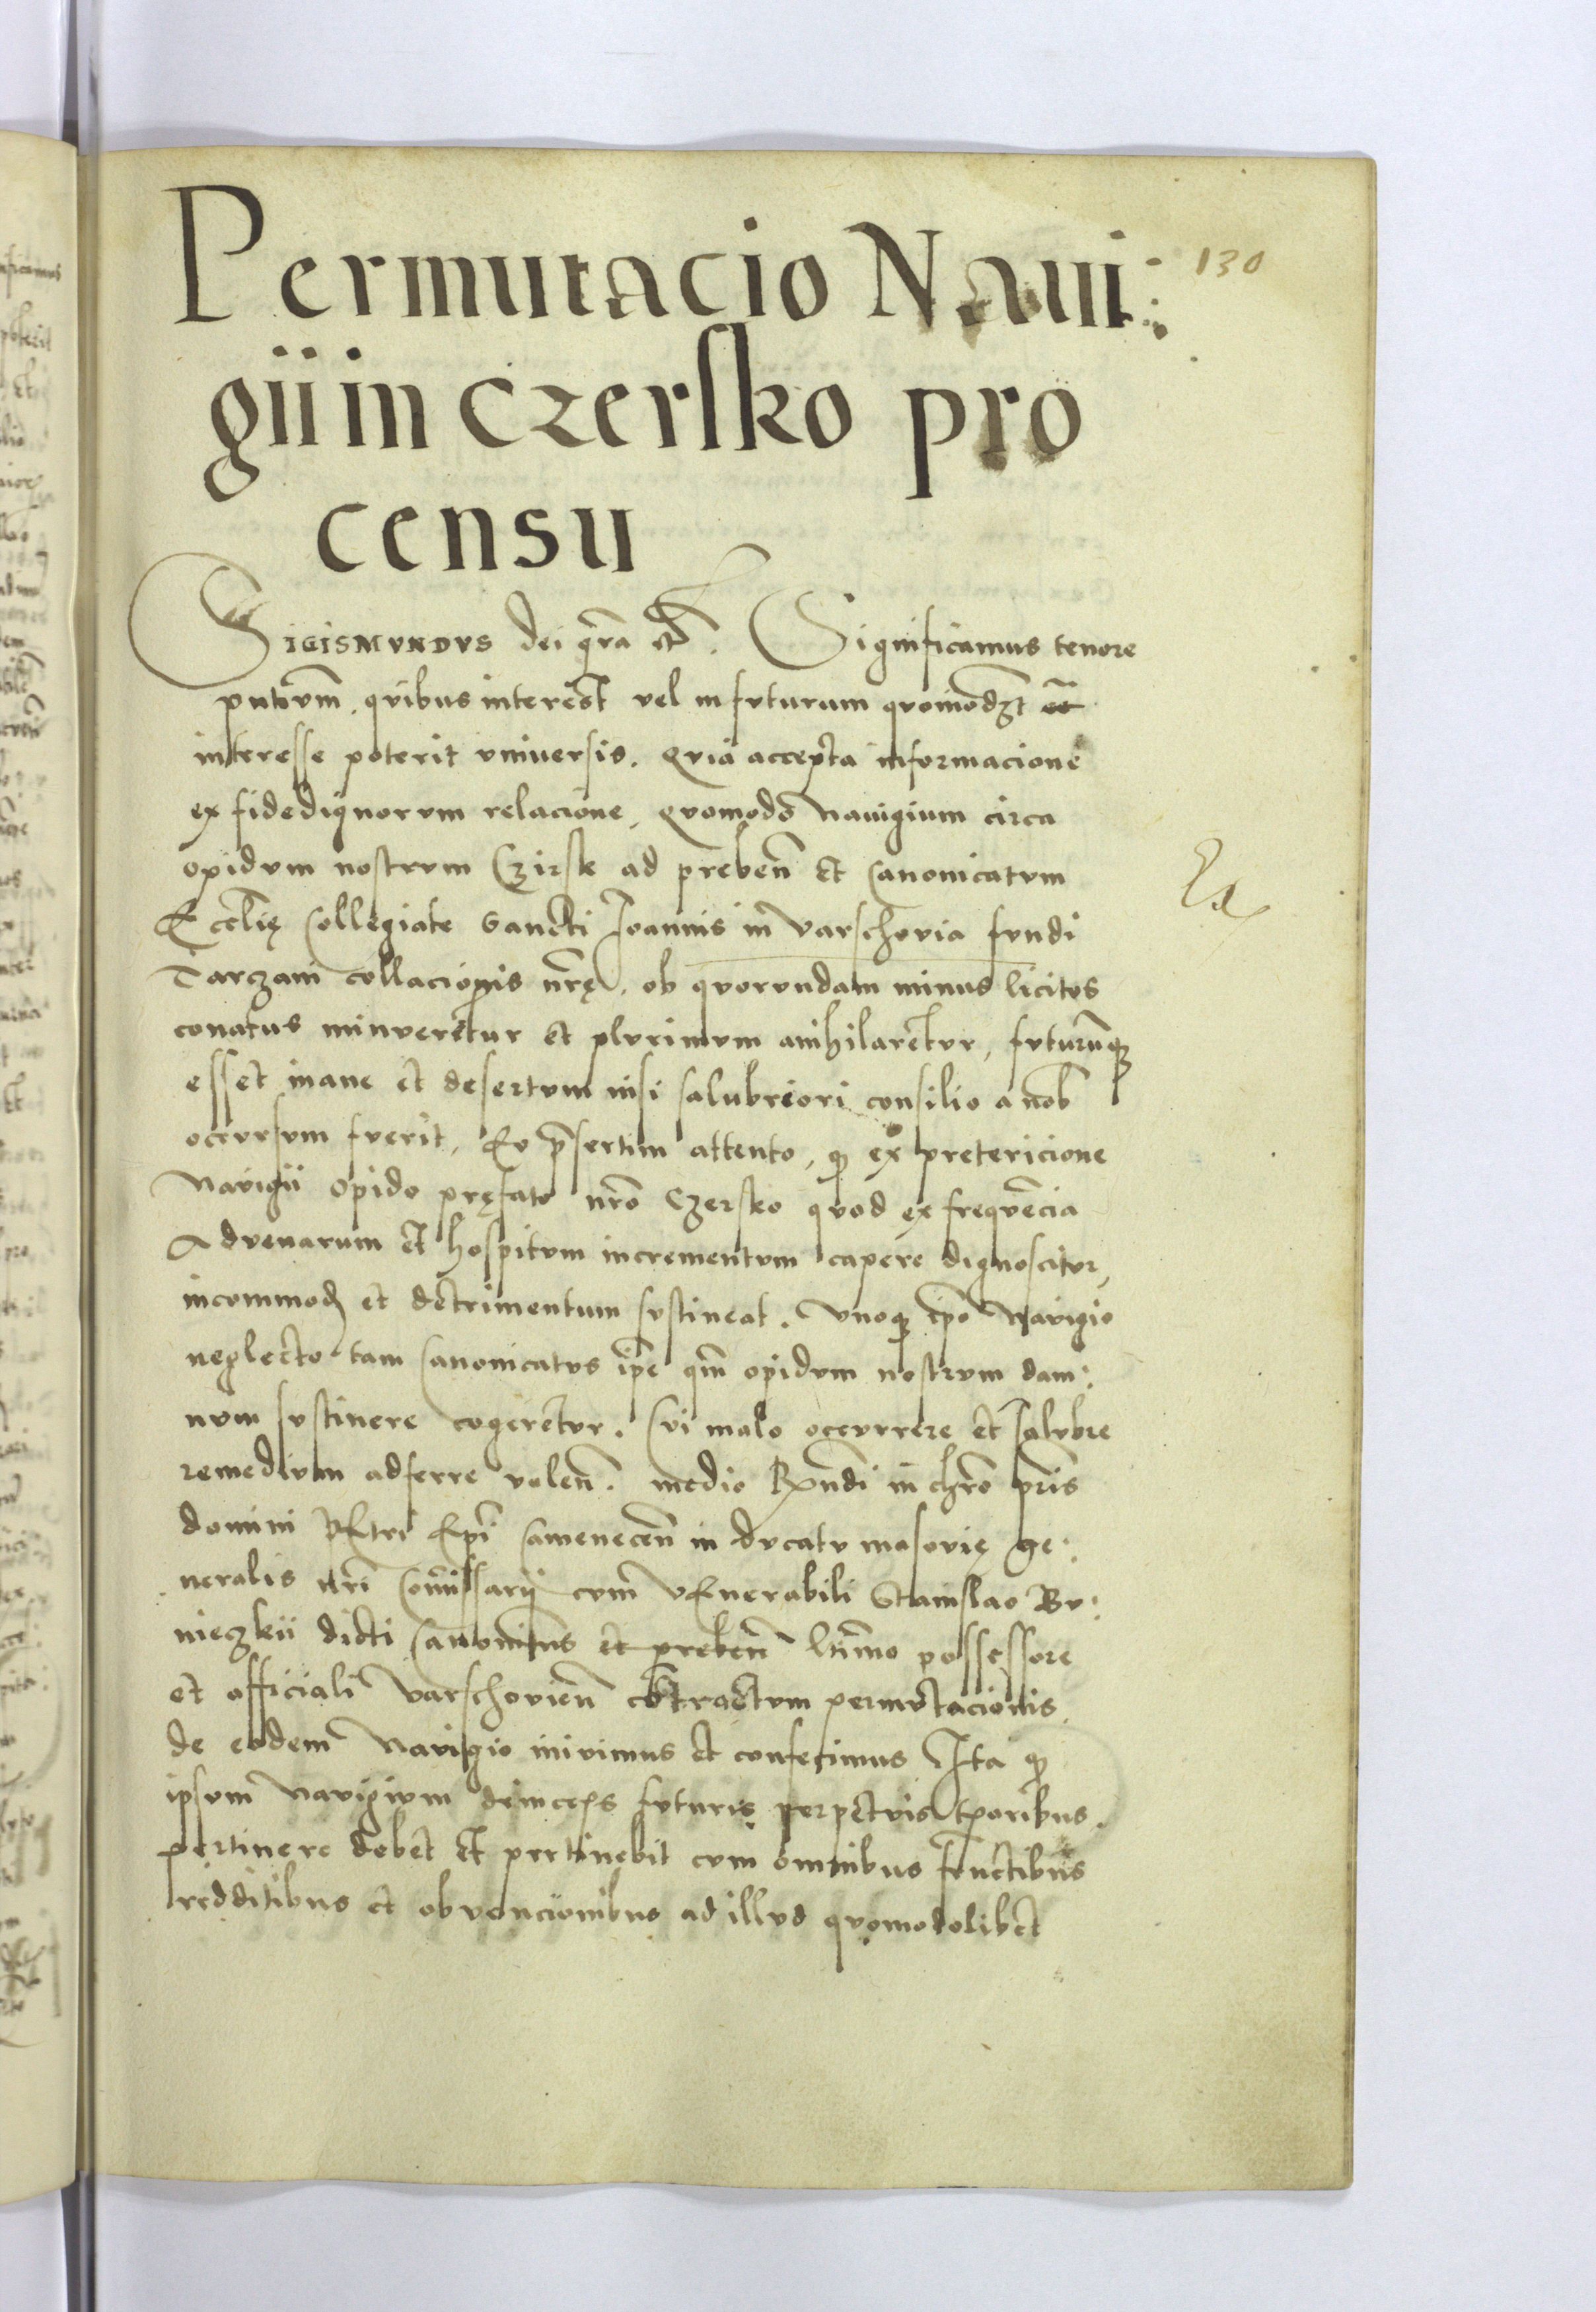 Permutacio Naui:
130
gii in Czersko pro
censu
Sigismvndvs dei gr̃a etc̃. Significamus tenore
pn̄tivm̄. qvibus interest vel in fvturum qvomodꝫt
interesse poterit vniuersis. Qvia accepta informacione
ex fidedignorvm relacione, qvomodo Nauigium circa
opidvm nostrvm Czirsk ad prebeñ et Canonicatvm
Eccl̃ię Collegiate Sancti Ioannis in Varschovia fvndi
Tarczani collacionis nr̃ę. ob qvorvndam minus licitos
conatus minveretur et plvrimvm anihilaretvr, fvturũqꝫ
esset inane et desertvm nisi salubriori consilio a nob̃
occvrsvm fverit, Eo p̃sertim attento, qꝫ ex pretericione
Navigii opido pręfato nr̃o Czersko qvod ex freqvẽcia
Advenarum et hospitvm incrementvm capere dignoscitvr,
incommodꝫ et detrimentum svstineat. Vnoqꝫ ip̃o Navigio
neglecto tam Canonicatvs ip̃e qm̃ opidvm nostrvm dam:
nvm svstinere cogeretvr. Cvi malo occvrrere et salvbre
remedivm adferre voleñ. medio Rx̃ndi in chr̃o pr̃is
domini PEtri Ep̃i Cameneceñ in dvcatv masovię ge:
neralis nr̃i Com̃issarij cvm VEnerabili Stanislao Bv:
nieczkii dicti Canonitus et prebeñ ltĩmo possessore
et officiali Varschovieñ cõtractvm permvtacionis
de eodem Navigio inivimus et confecimus Ita qꝫ
ipsvm Navigivm deinceps fvturis perpetvis tp̃oribus.
pertinere debet et pertinebit cvm omnibus frvctibus
redditibus et obvencionibus ad illvd qvomodolibet